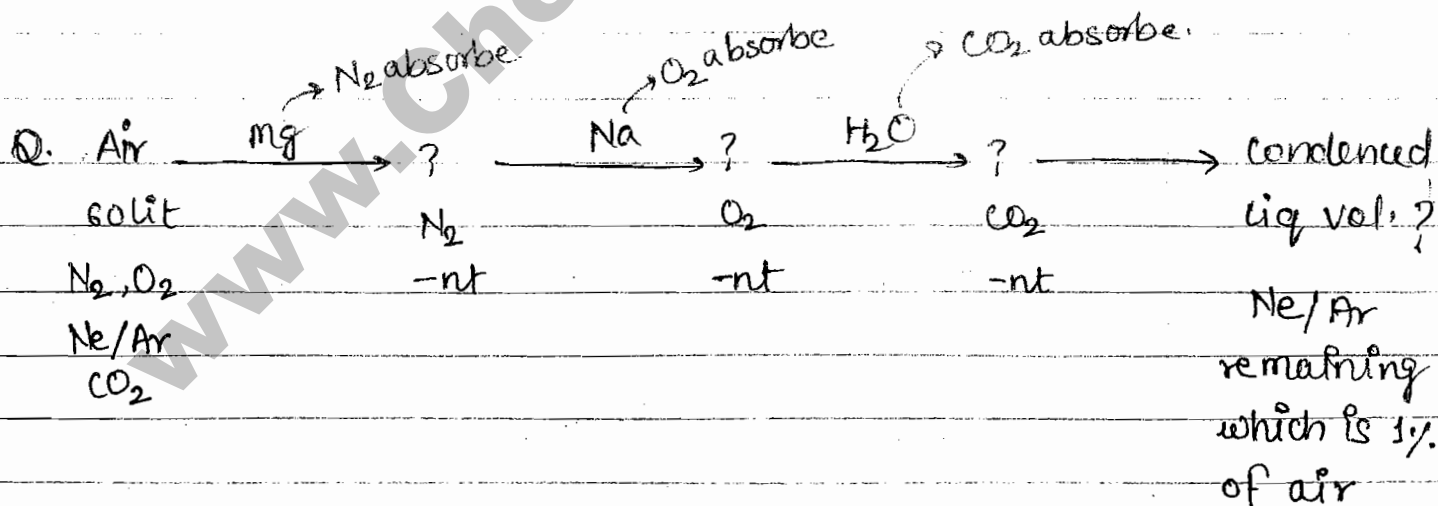 www.Che
N₂ absorbe
O₂ absorbe
CO₂ absorbe.
Q. Air mg ? Na ? H₂O ? condenced
60lit N₂ O₂ CO₂ liq vol. ?
N₂, O₂ -nt -nt -nt
Ne/Ar
CO₂
Ne/Ar
remaining
which is 1%.
of air